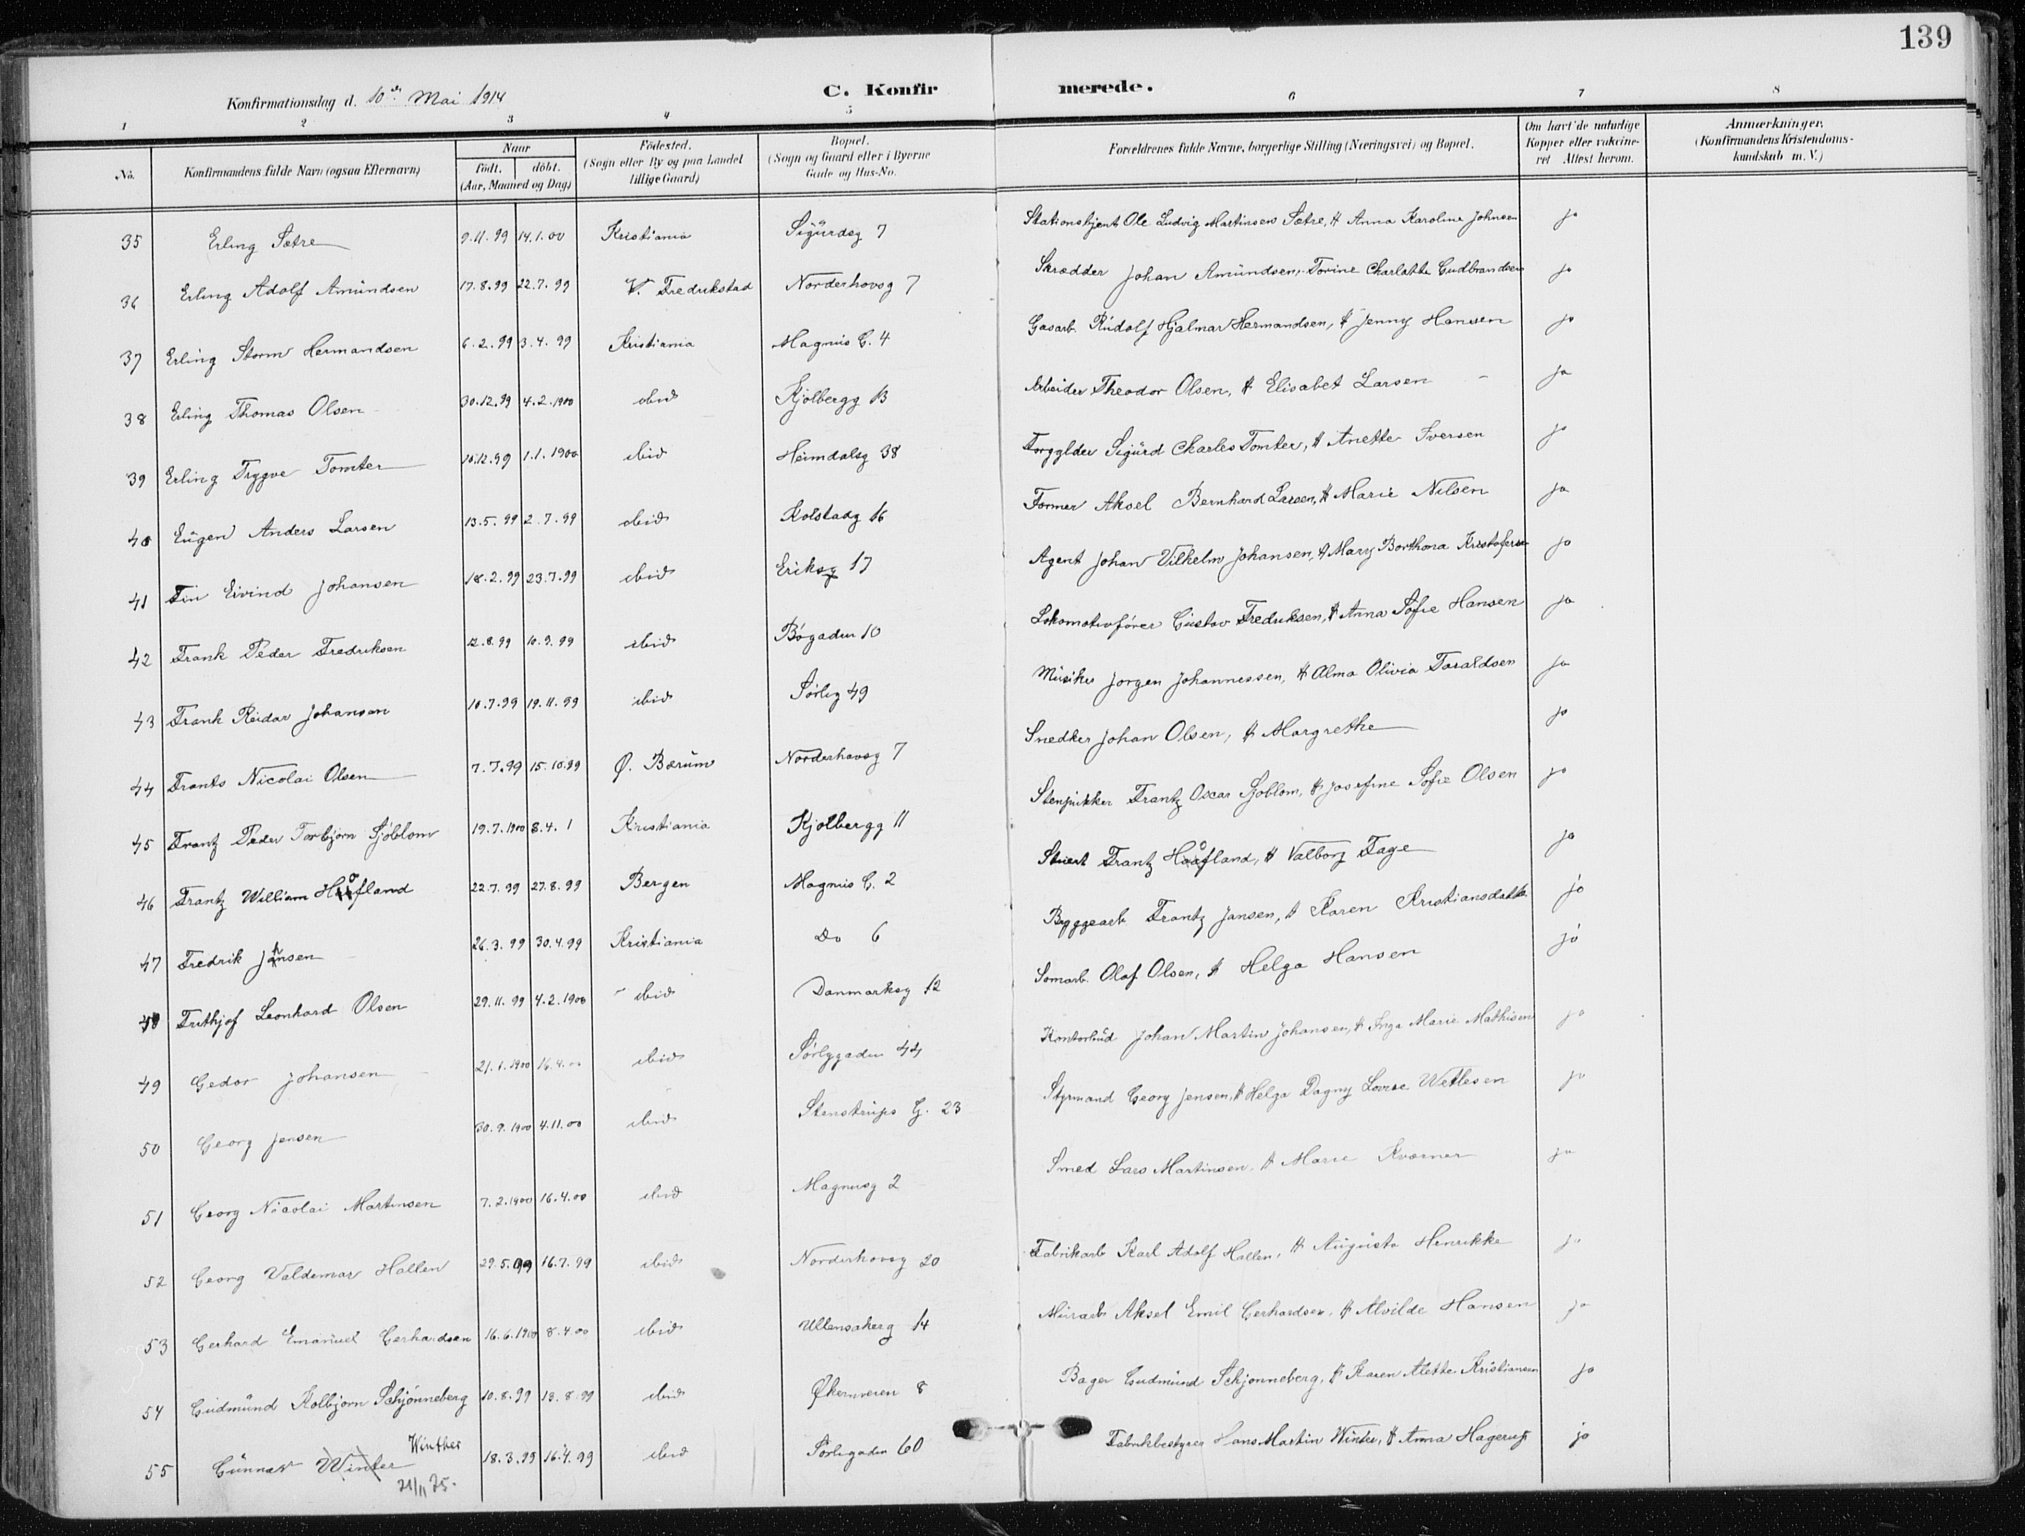 139
Konfirmationsdag d. 10de Mai 1914
C. Konfirmerede.
1 2 3 4 5 6 7 8
No. Konfirmandens fulde Navn (ogsaa Efternavn) Naar født. døbt. (Aar, Maaned og Dag) Fødested. (Sogn eller By og paa Landet tillige Gaard) Bopæl. (Sogn og Gaard eller i Byerne Gade og Hus-No. Forældrenes fulde Navne, borgerlige Stilling (Næringsvei) og Bopæl. Om havt de naturlige Kopper eller vakcineret Attest herom. Anmærkninger. (Konfirmandens Kristendomskundskab m. V.)
35 Erling Sætre 9.11.99 14.1.00 Kristiania Sigurdsg 7 Stationsbjent Ole Ludvig Martinsen Sætre, & Anna Karoline Johnsen ja
36 Erling Adolf Amundsen 17.8.99 22.7.99 V. Fredrikstad Norderhovsg 7 Skrædder Johan Amundsen, Torine Charlotte Gudbrandsen ja
37 Erling Storm Hermandsen 6.2.99 3.4.99 Kristiania Magnus G. 4 Gasarb. Rudolf Hjalmar Hermandsen, & Jenny Hansen ja
38 Erling Thomas Olsen 30.12.99 4.2.1900 ibid Kjølbergg 13 Arbeider Theodor Olsen, & Elisabet Larsen ja
39 Erling Trygve Tomter 10.12.99 1.1.1900 ibid Heimdalsg 38 Forgylder Sigurd Charles Tomter, & Anette Iversen ja
40 Eugen Anders Larsen 13.5.99 2.7.99 ibid Kolstadg 16 Former Aksel Bernhard Larsen, & Marie Nilsen ja
41 Fin Eivind Johansen 18.2.99 23.7.99 ibid Eriksg 17 Agent Johan Vilhelm Johansen, & Mary Borthona Kristofersen ja
42 Frank Peder Fredriksen 12.8.99 10.9.99 ibid Bøgaden 10 Lokomotivfører Gustav Fredriksen, & Anna Sofie Hansen ja
43 Frank Reidar Johansen 10.7.99 19.11.99 ibid Sørlig 49 Musiker Jørgen Johannessen, & Alma Olivia Taraldsen ja
44 Frants Nicolai Olsen 7.7.99 15.10.99 Ø. Bærum Norderhovsg 7 Snedker Johan Olsen, & Margrethe ja
45 Frantz Peder Torbjørn Sjøblom 19.7.1900 8.4.1 Kristiania Kjølbergg 11 Stenpikker Frantz Oscar Sjøblom, & Josefine Sofie Olsen ja
46 Frantz William Håfland 22.7.99 27.8.99 Bergen Magnus G. 2 Stuert Frantz Håfland, & Valborg Fage ja
47 Fredrik Jansen 26.3.99 30.4.99 Kristiania Do 6 Byggearb Frantz Jansen, & Karen Kristiansdatter ja
48 Frithjof Leonhard Olsen 29.11.99 4.2.1900 ibid Danmarksg 12 Somarb. Olaf Olsen, & Helga Hansen ja
49 Gedor Johansen 21.1.1900 16.4.00 ibid Sørliggaden 44 Kontorbud Johan Martin Johansen, & Inga Marie Mathisen ja
50 Georg Jensen 30.9.1900 4.11.00 ibid Stenstrups G. 23 Styrmand Georg Jensen, & Helga Dagny Lovise Wetlesen ja
51 Georg Nicolai Martinsen 7.2.1900 16.4.00 ibid Magnusg 2 Smed Lars Martinsen, & Marie Kværner ja
52 Georg Valdemar Hallen 29.5.99 16.7.99 ibid Norderhovsg 20 Fabrikarb Karl Adolf Hallen, & Augusta Henrikke ja
53 Gerhard Emanuel Gerhardsen 16.6.1900 8.4.00 ibid Ullensakerg 14 Murarb Aksel Emil Gerhardsen, & Alvilde Hansen ja
54 Gudmund Kolbjørn Schjønneberg 10.8.99 13.8.99 ibid Økernveien 8 Bager Gudmund Schjønneberg, & Karen Alette Kristiansen ja
55 Gunnar Winter Winther 21/11 25. 18.3.99 16.4.99 ibid Sørligaden 60 Fabrikbestyrer Hans Martin Winter, & Anna Hagerup ja